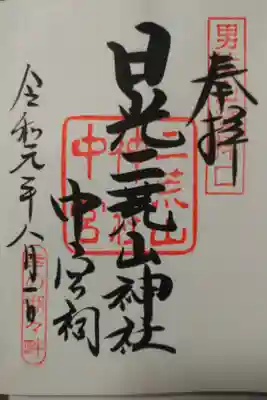 奉拝
日光二荒山神社
中宮祠
令和元年八月一日
二荒山
神社
中宮